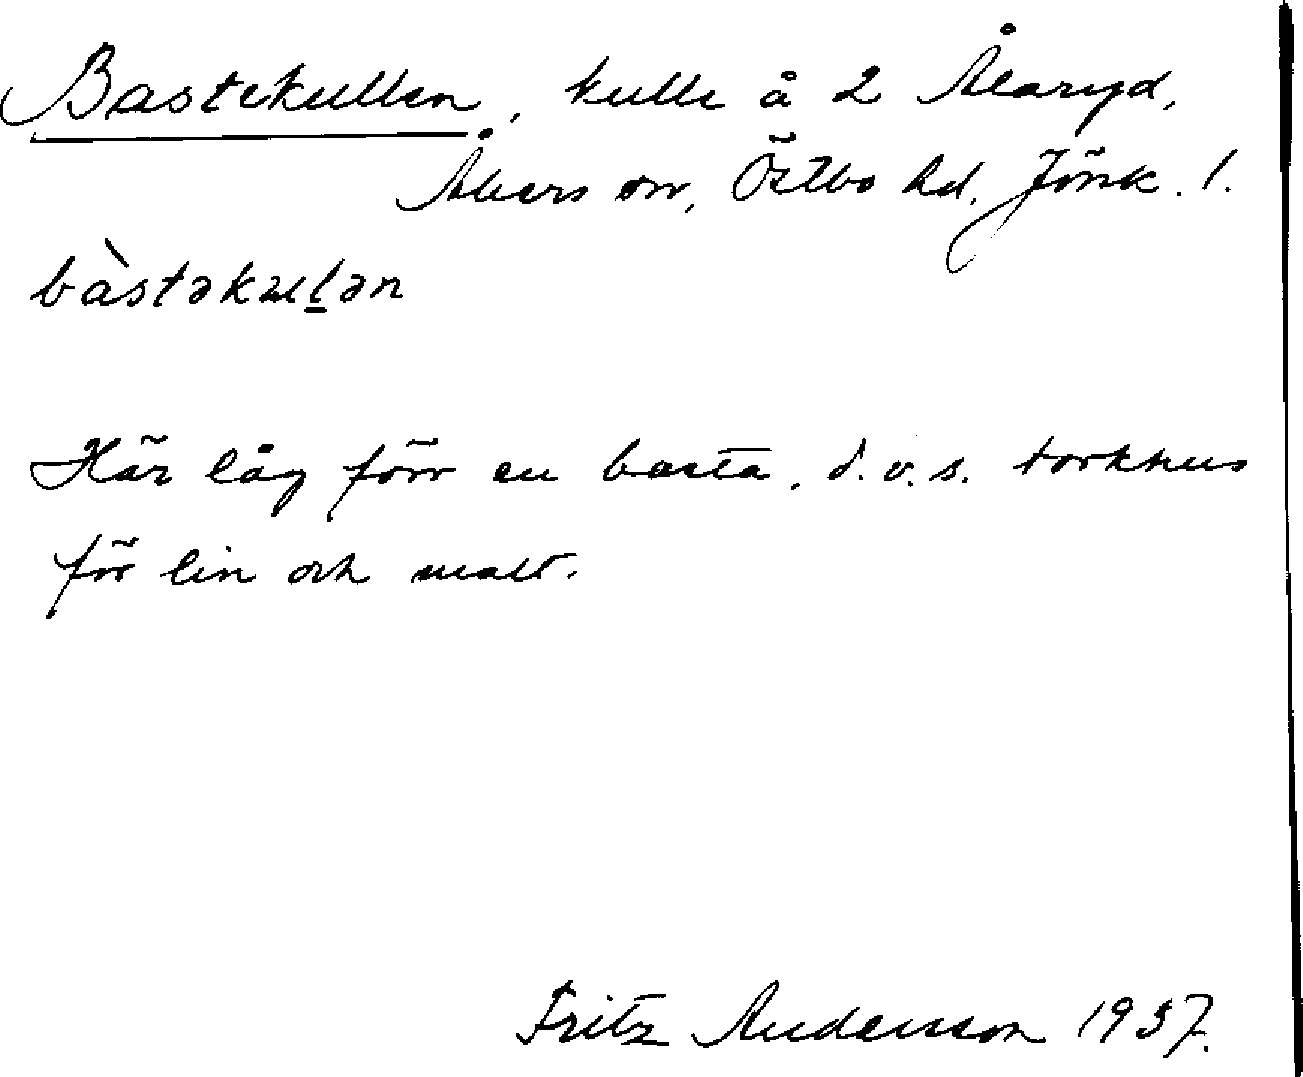 Bastekullen, kulle å 2 Ålaryd,
Åkers sn, Östbo hd, Jönk. l.
bàstəkuḻən
Här låg förr en basta, d.v.s. torkhus
för lin och malt.
Fritz Andersson 1937.